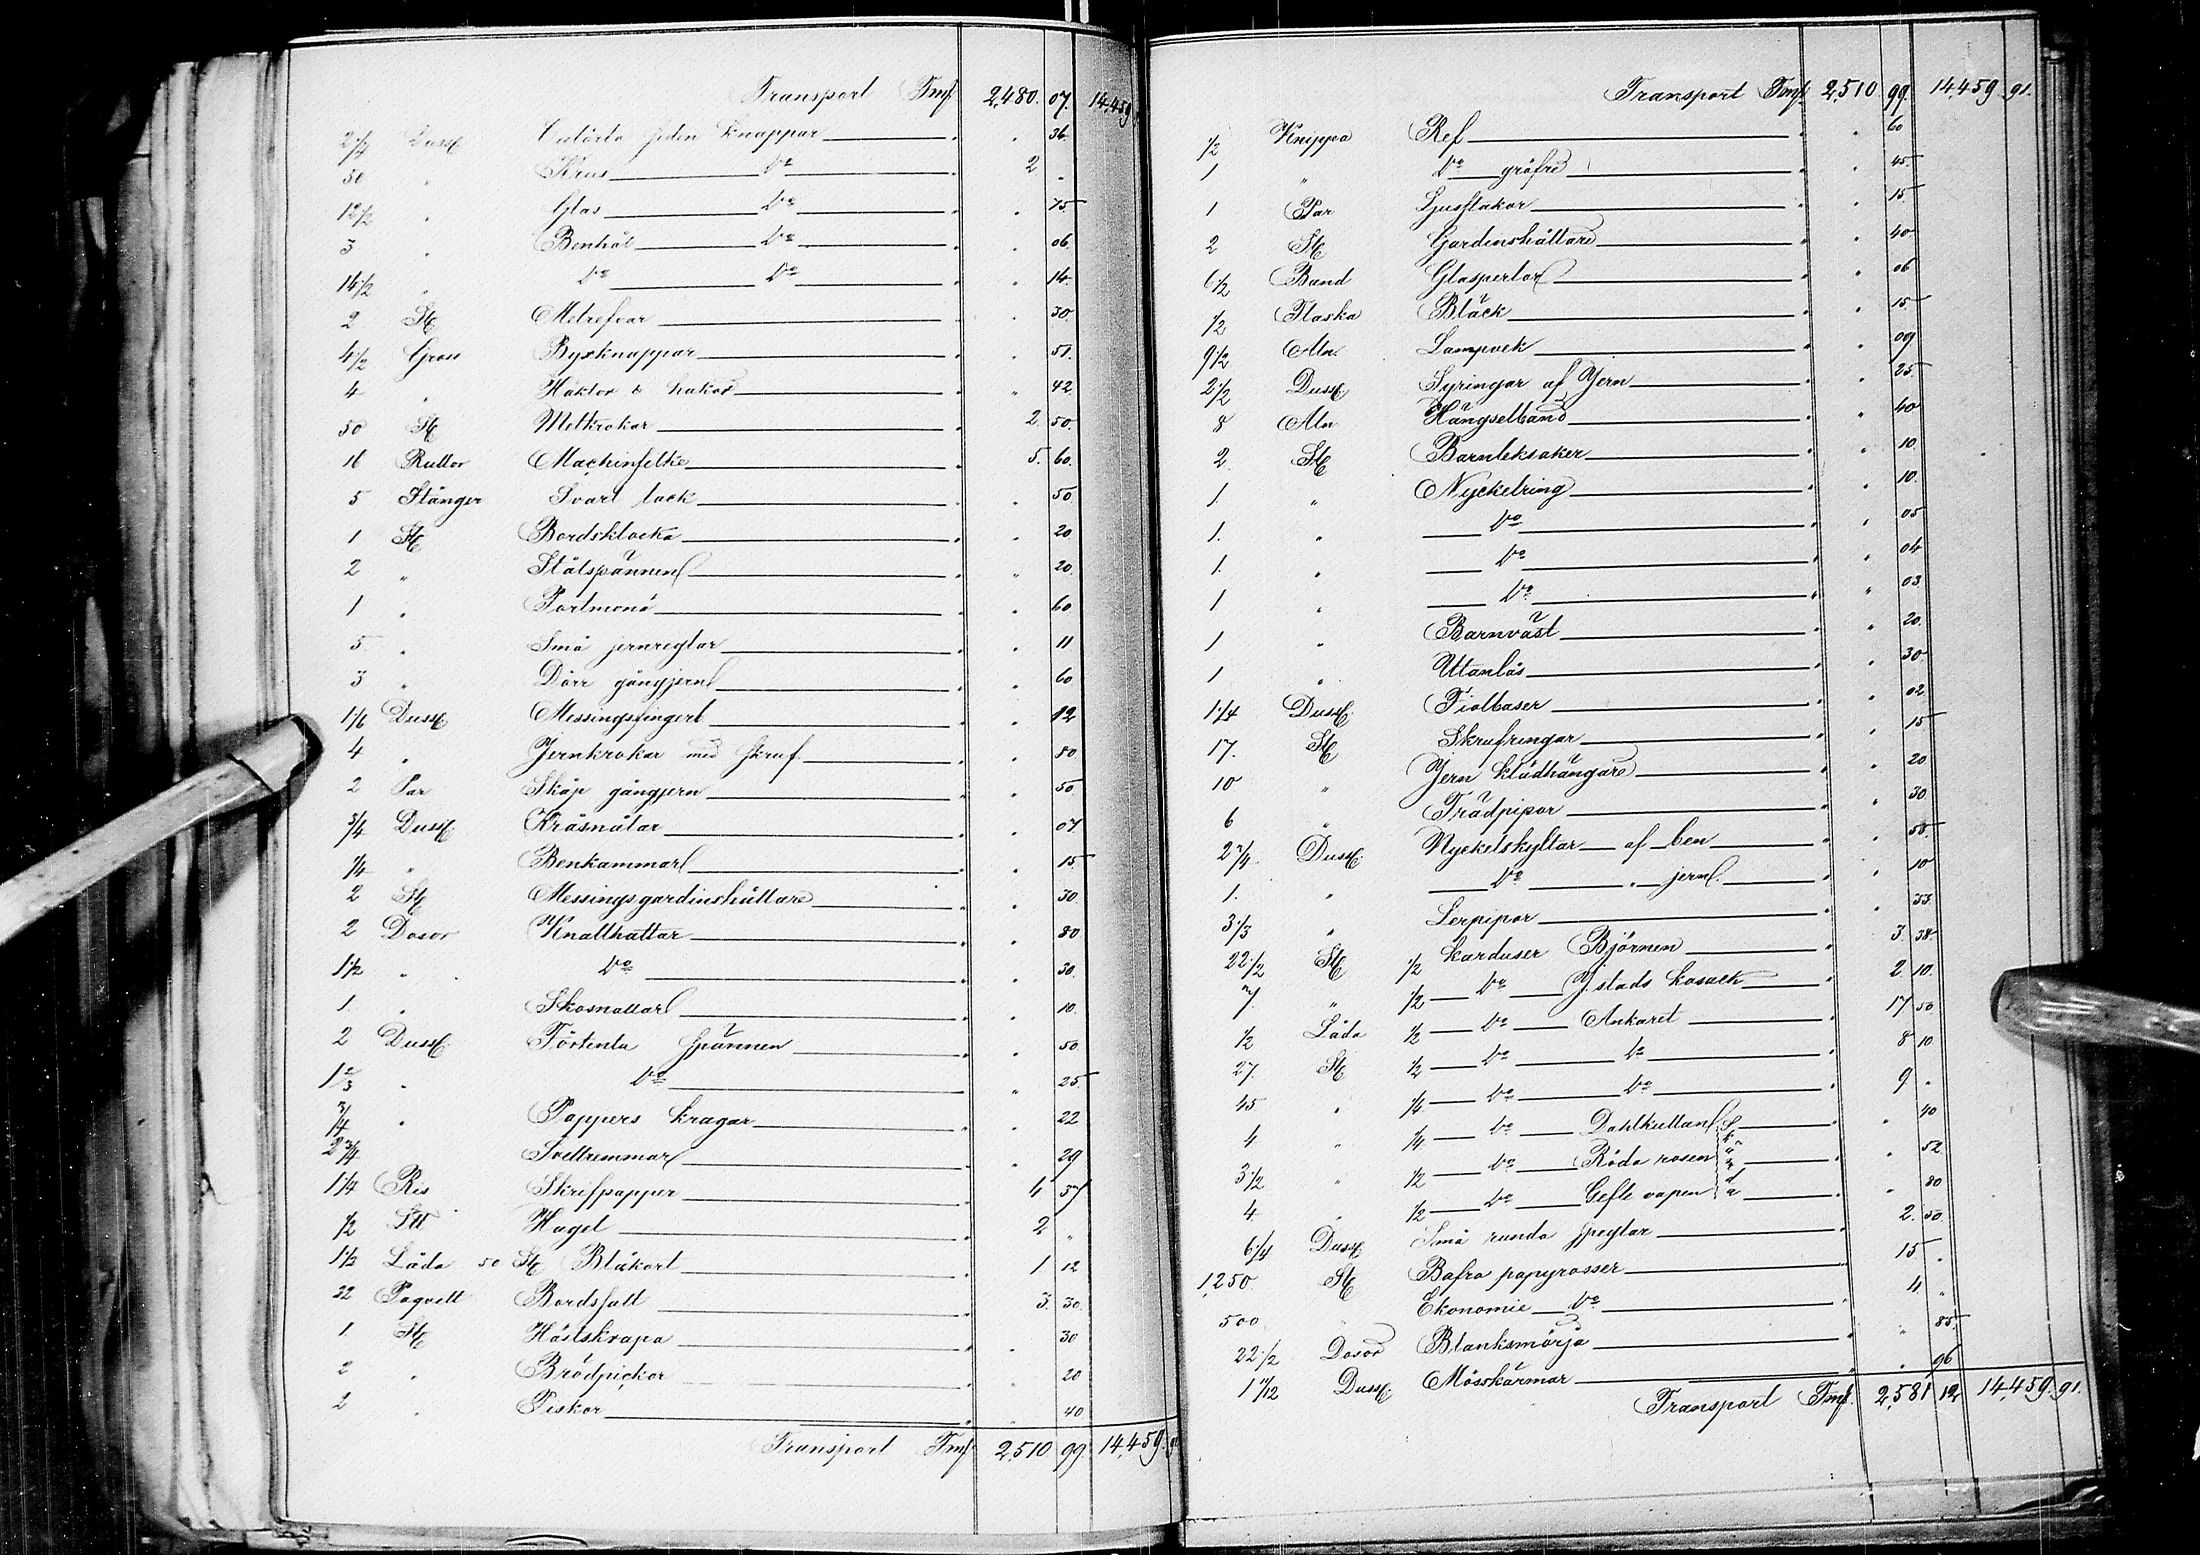 Transport Fmk 2,480. 07. 14,459
2 1/4 Duss knappar " 36.
50 " Krus Do 2 "
12 1/2 " Glas Do " 75
3 " Benhål Do " 06
14 1/2 " Do Do " 14.
2 St Metrefvar " 30.
4 1/2 Gross Byxknappar " 51.
4 " Haktor & hakar " 42.
50 St Metkrokar 2. 50.
16 Rullor Machinsilke 5. 60.
5 Stänger Svart lack " 50.
1 St Bordsklocka " 20
2 " Stålspännen " 20.
1 " Portmonä " 60
5 " Små jernreglar " 11
3 " Dörr gångjern " 60
1 1/6 Duss Messingsfingerb " 12
4 " Jernkrokar med skruf " 80
2 Par Skåp gångjern " 50
3/4 Duss Kråsnålar " 07
1/4 " Benkammar " 15
2 St Messingsgardinshållare " 30
2 Dosor Knallhattar " 80
1 1/2 " Do " 30.
1. " Skosnattar " 10.
2 Duss Förtenta spännen " 50
1 2/3 " Do " 25
3/4 " Pappers kragar " 22
2 3/4 " Svettremmar " 29
1 1/4 Ris Skrifpapper 4 37
1/2 Hagel 2 "
1 1/2 Låda 50 St Blåkort 1 12
22 Paqvett Bordssalt 3. 30.
1. St Hästskrapa " 30
2 " Brödpickor " 20
2 " Piskor " 40
Transport Fmk 2,510 99. 14,459. 91
Transport Fmk 2,510 99. 14,459 91.
1/2 Knippa Ref " 60
1 " Do gröfre " 45
1 Par Ljusstakar " 15
2 St Gardinshållare " 40
6 1/2 Band Glasperlor " 06
1/2 Flaska Bläck " 15
9 1/2 Aln Lampvek " 09
2 1/2 Duss Syringar af Jern " 25
8 Aln Hängselband " 40
2 St Barnleksaker " 10.
1 " Nyckelring " 10.
1. " Do " 05
1. " Do " 04
1 " Do " 03
1 " Barnväst " 20.
1 " Utanlås " 30
1 1/4 Duss Fiolbaser " 02
17. St Skrufringar " 15
10 " Jern klädhängare " 20
6 " Trädpipor " 30
2 3/4 Duss Nyckelskyltar af ben " 55.
1. " Do " jern " 10
3 1/3 " Lerpipor " 33.
22 1/2 St 1/2 karduser Björnen 3. 38
7 " 1/2 Do Y. stads kosack 2. 10.
1/2 Låda 1/2 Do Ankaret 17 50
27. St 1/2 Do Do 8 10
45 " 1/4 Do Do 9 "
4 " 1/4 Do Dahlkullan " 40
3 1/2 " 1/2 Do Röda rosen " 52
4 " 1/2 Do Gefle vapen " 80
6 1/4 Duss Små runda speglar 2. 50
1,250 St Bafra papyrosser 15 "
500 " Ekonomie Do 4 "
22 1/2 Dosor Blanksmörja " 85
1 11/12 Duss Mösskärmar " 96
Transport Fmk 2,581 12 14,459. 91.